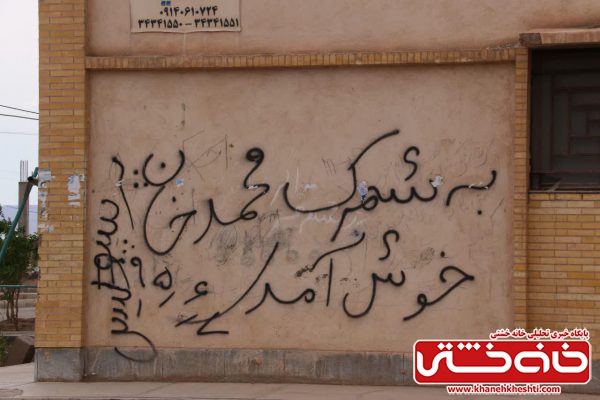 ۰۹۱۴۰۶۱۰۷۲۴
۳۴۳۴۱۵۵۰ - ۳۴۳۴۱۵۵۱
به شهرک محمدخان
خوش آمدی
پایگاه خبری تحلیلی خانه خشتی
خانه خشتی
www.khanehkheshti.com